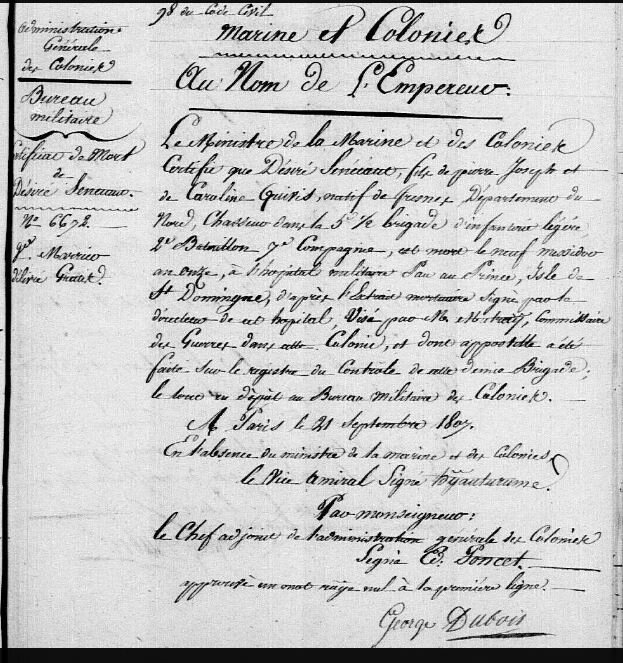 98 du Code Civil
Administration
Générale
des Colonies
Bureau
militaire
Certificat de Mort
de
Désiré Senécaut.
No 6672.
délivré Gratis.
Marine et Colonies
Au Nom de L'Empereur.
Le Ministre de la Marine et des Colonies
Certifie que Désiré Senécaut, fils de pierre Joseph et
de Caroline, natif de fresnes, Département du
Nord, Chasseur dans la 5e ½ brigade d'infanterie légère
2e Bataillon 7e Compagnie, est mort le neuf messidor
an onze, à l'hôpital militaire Pau au Prince, Isle de
St Domingue, d'après l'Extrait mortuaire Signé par le
directeur de cet hopital, Visé par M., Commissaire
des Guerres dans cette Colonie, et dont appostille a été
faite sur le registre du Controle de cette demie Brigade;
le tout en dépôt au Bureau militaire des Colonies.
A Paris le 21 Septembre 1807.
En l'absence du ministre de la marine et des Colonies,
le Vice Amiral Signé
Par monseigneur:
le Chef adjoint de l'administration générale des Colonies
Signé Ed. Poncet.
approuvé un mot rayé nul à la première ligne.
George Dubois